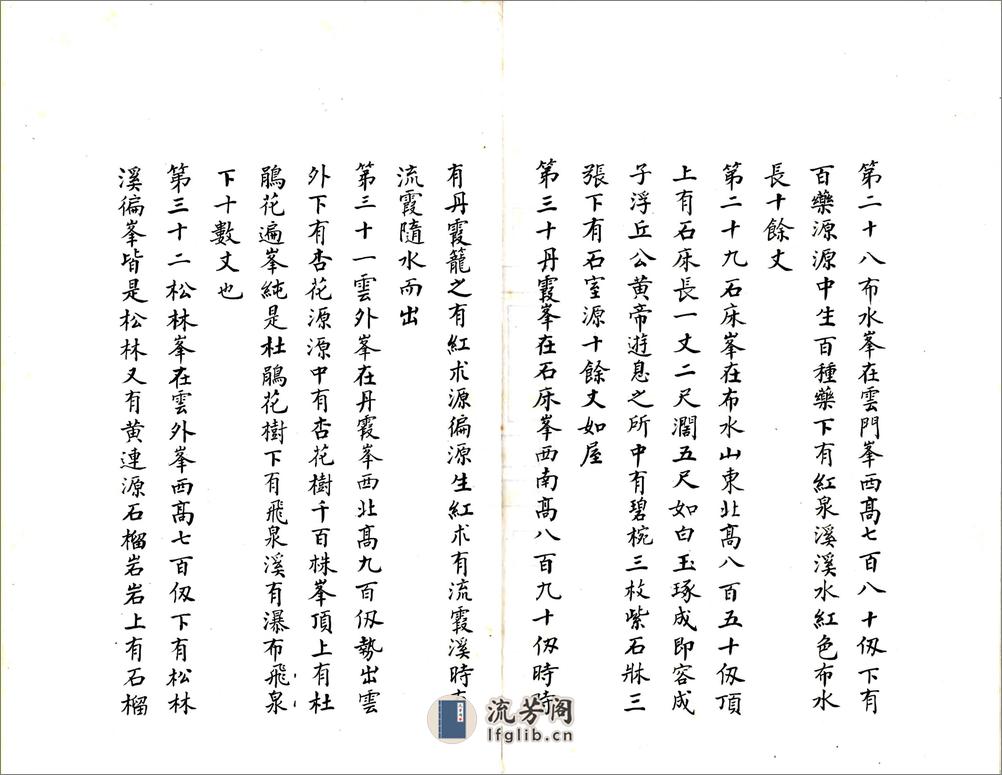 第二十八布水峯在雲門峯西髙七百八十仭下有
百藥源源中生百種藥下有紅泉溪溪水紅色布水
長十餘丈
第二十九石床峯在布水山東北髙八百五十仭頂
上有石床長一丈二尺濶五尺如白玉琢成即容成
子浮丘公黄帝遊息之所中有碧椀三枚紫石牀三
張下有石室源十餘丈如屋
第三十丹霞峯在石床峯西南髙八百九十仭時時
有丹霞籠之有紅朮源徧源生紅朮有流霞溪時有
流霞隨水而出
第三十一雲外峯在丹霞峯西北髙九百仭勢出雲
外下有杏花源源中有杏花樹千百株峯頂上有杜
鵑花遍峯純是杜鵑花樹下有飛泉溪有瀑布飛泉
下十數丈也
第三十二松林峯在雲外峯西髙七百仭下有松林
溪徧峯皆是松林又有黄連源石榴岩岩上有石榴
流芳阁
lfglib.cn